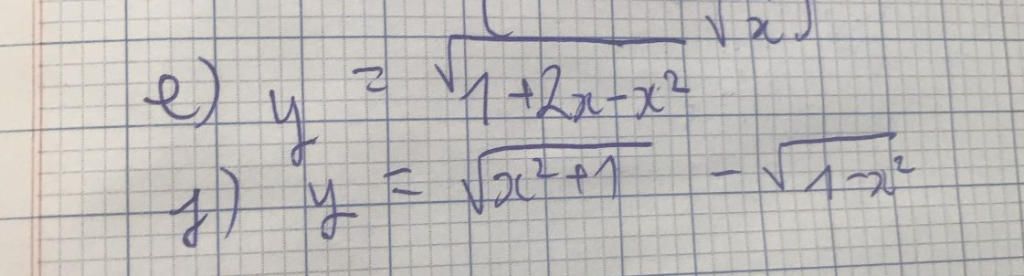 √x)
e) y = √(1+2x-x²)
f) y = √(x²+1) - √(1-x²)